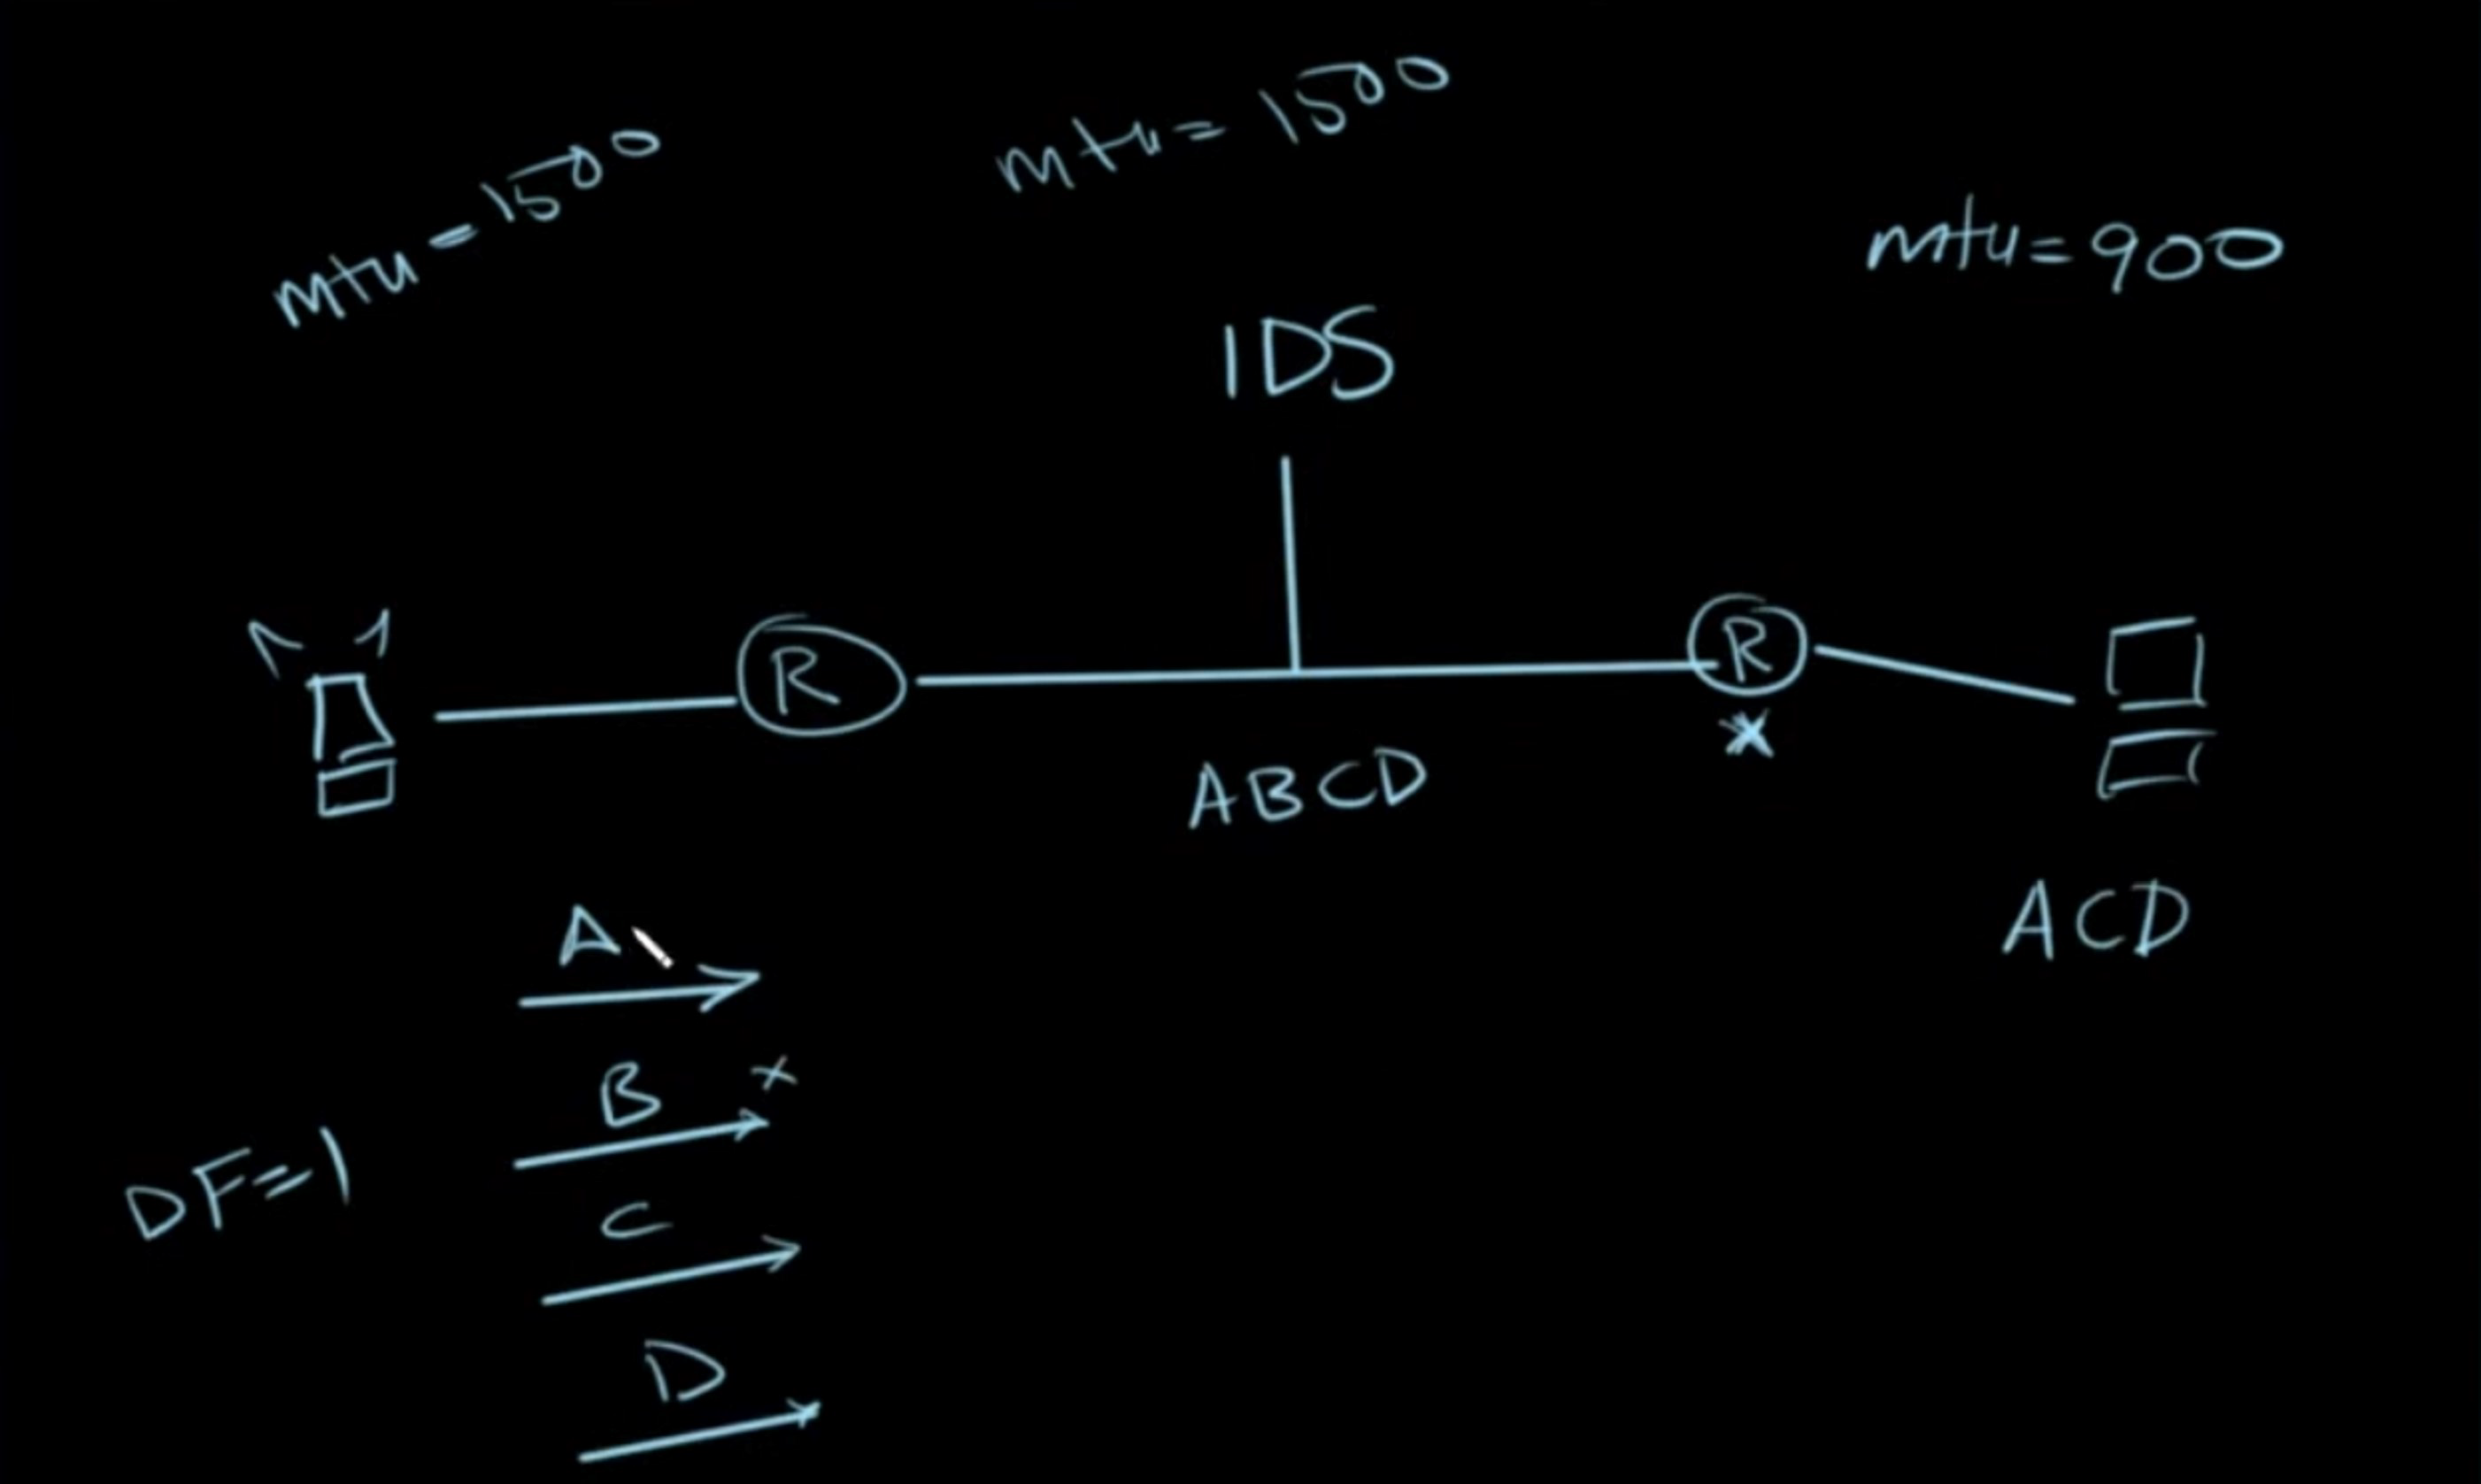 mtu = 1500
mtu = 1500
mtu = 900
IDS
R
R
ABCD
ACD
A
B
DF=1
C
D